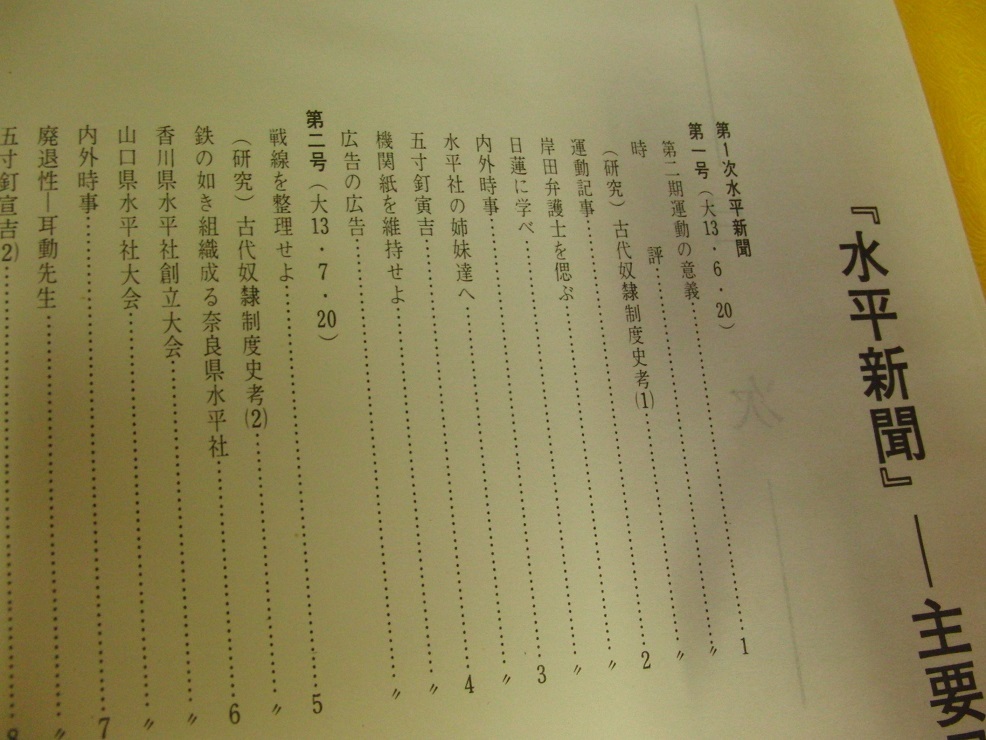 『水平新聞』――主要
第1次水平新聞
第一号（大13・6・20）
第二期運動の意義……1
時　評……〃
（研究）古代奴隷制度史考(1)……〃
運動記事……2
岸田弁護士を偲ぶ……〃
日蓮に学べ……〃
内外時事……3
水平社の姉妹達へ……〃
五寸釘寅吉……4
機関紙を維持せよ……〃
広告の広告……〃
第二号（大13・7・20）
戦線を整理せよ……5
（研究）古代奴隷制度史考(2)……〃
鉄の如き組織成る奈良県水平社……6
香川県水平社創立大会……〃
山口県水平社大会……〃
内外時事……7
廃退性―耳動先生……〃
五寸釘宣吉(2)……8